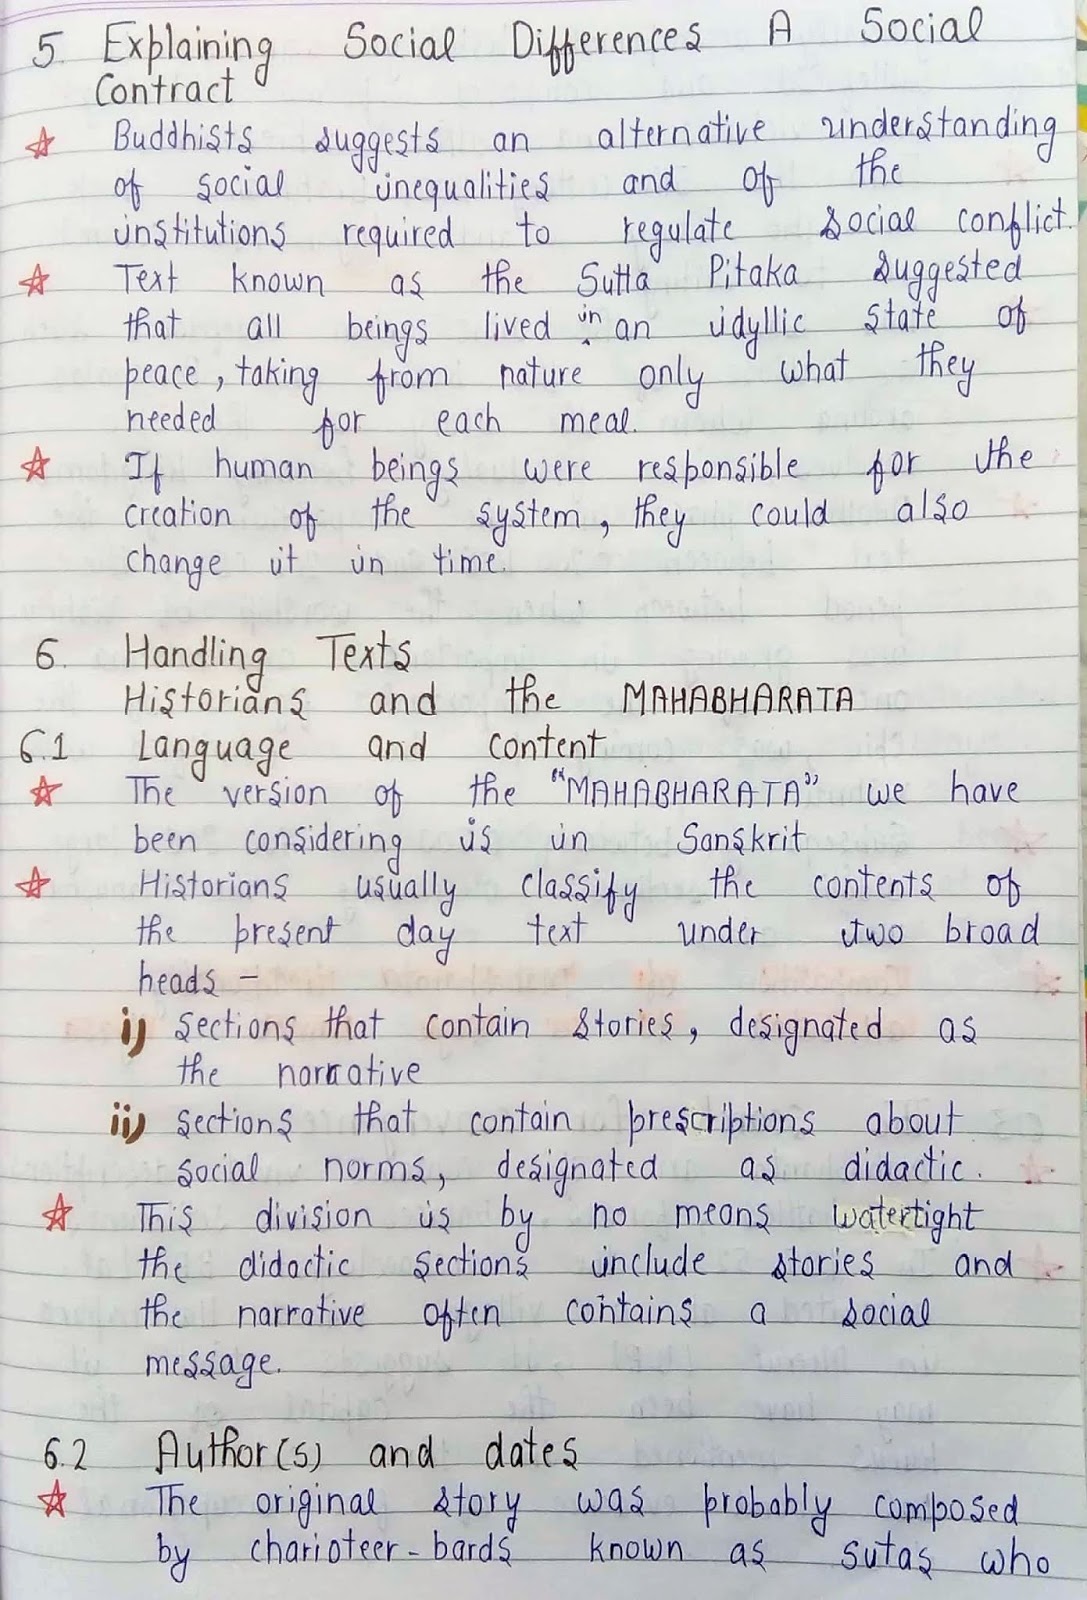 5. Explaining Social Differences A Social
Contract
☆ Buddhists suggests an alternative understanding
of social inequalities and of the
institutions required to regulate social conflict.
☆ Text known as the Sutta Pitaka suggested
that all beings lived in an idyllic state of
peace, taking from nature only what they
needed for each meal.
☆ If human beings were responsible for the
creation of the system, they could also
change it in time.
6. Handling Texts
Historians and the MAHABHARATA
6.1 Language and content
☆ The version of the "MAHABHARATA" we have
been considering is in Sanskrit
☆ Historians usually classify the contents of
the present day text under two broad
heads -
i) sections that contain stories, designated as
the narrative
ii) sections that contain prescriptions about
social norms, designated as didactic.
☆ This division is by no means watertight
the didactic sections include stories and
the narrative often contains a social
message.
6.2 Author(s) and dates
☆ The original story was probably composed
by charioteer-bards known as sutas who